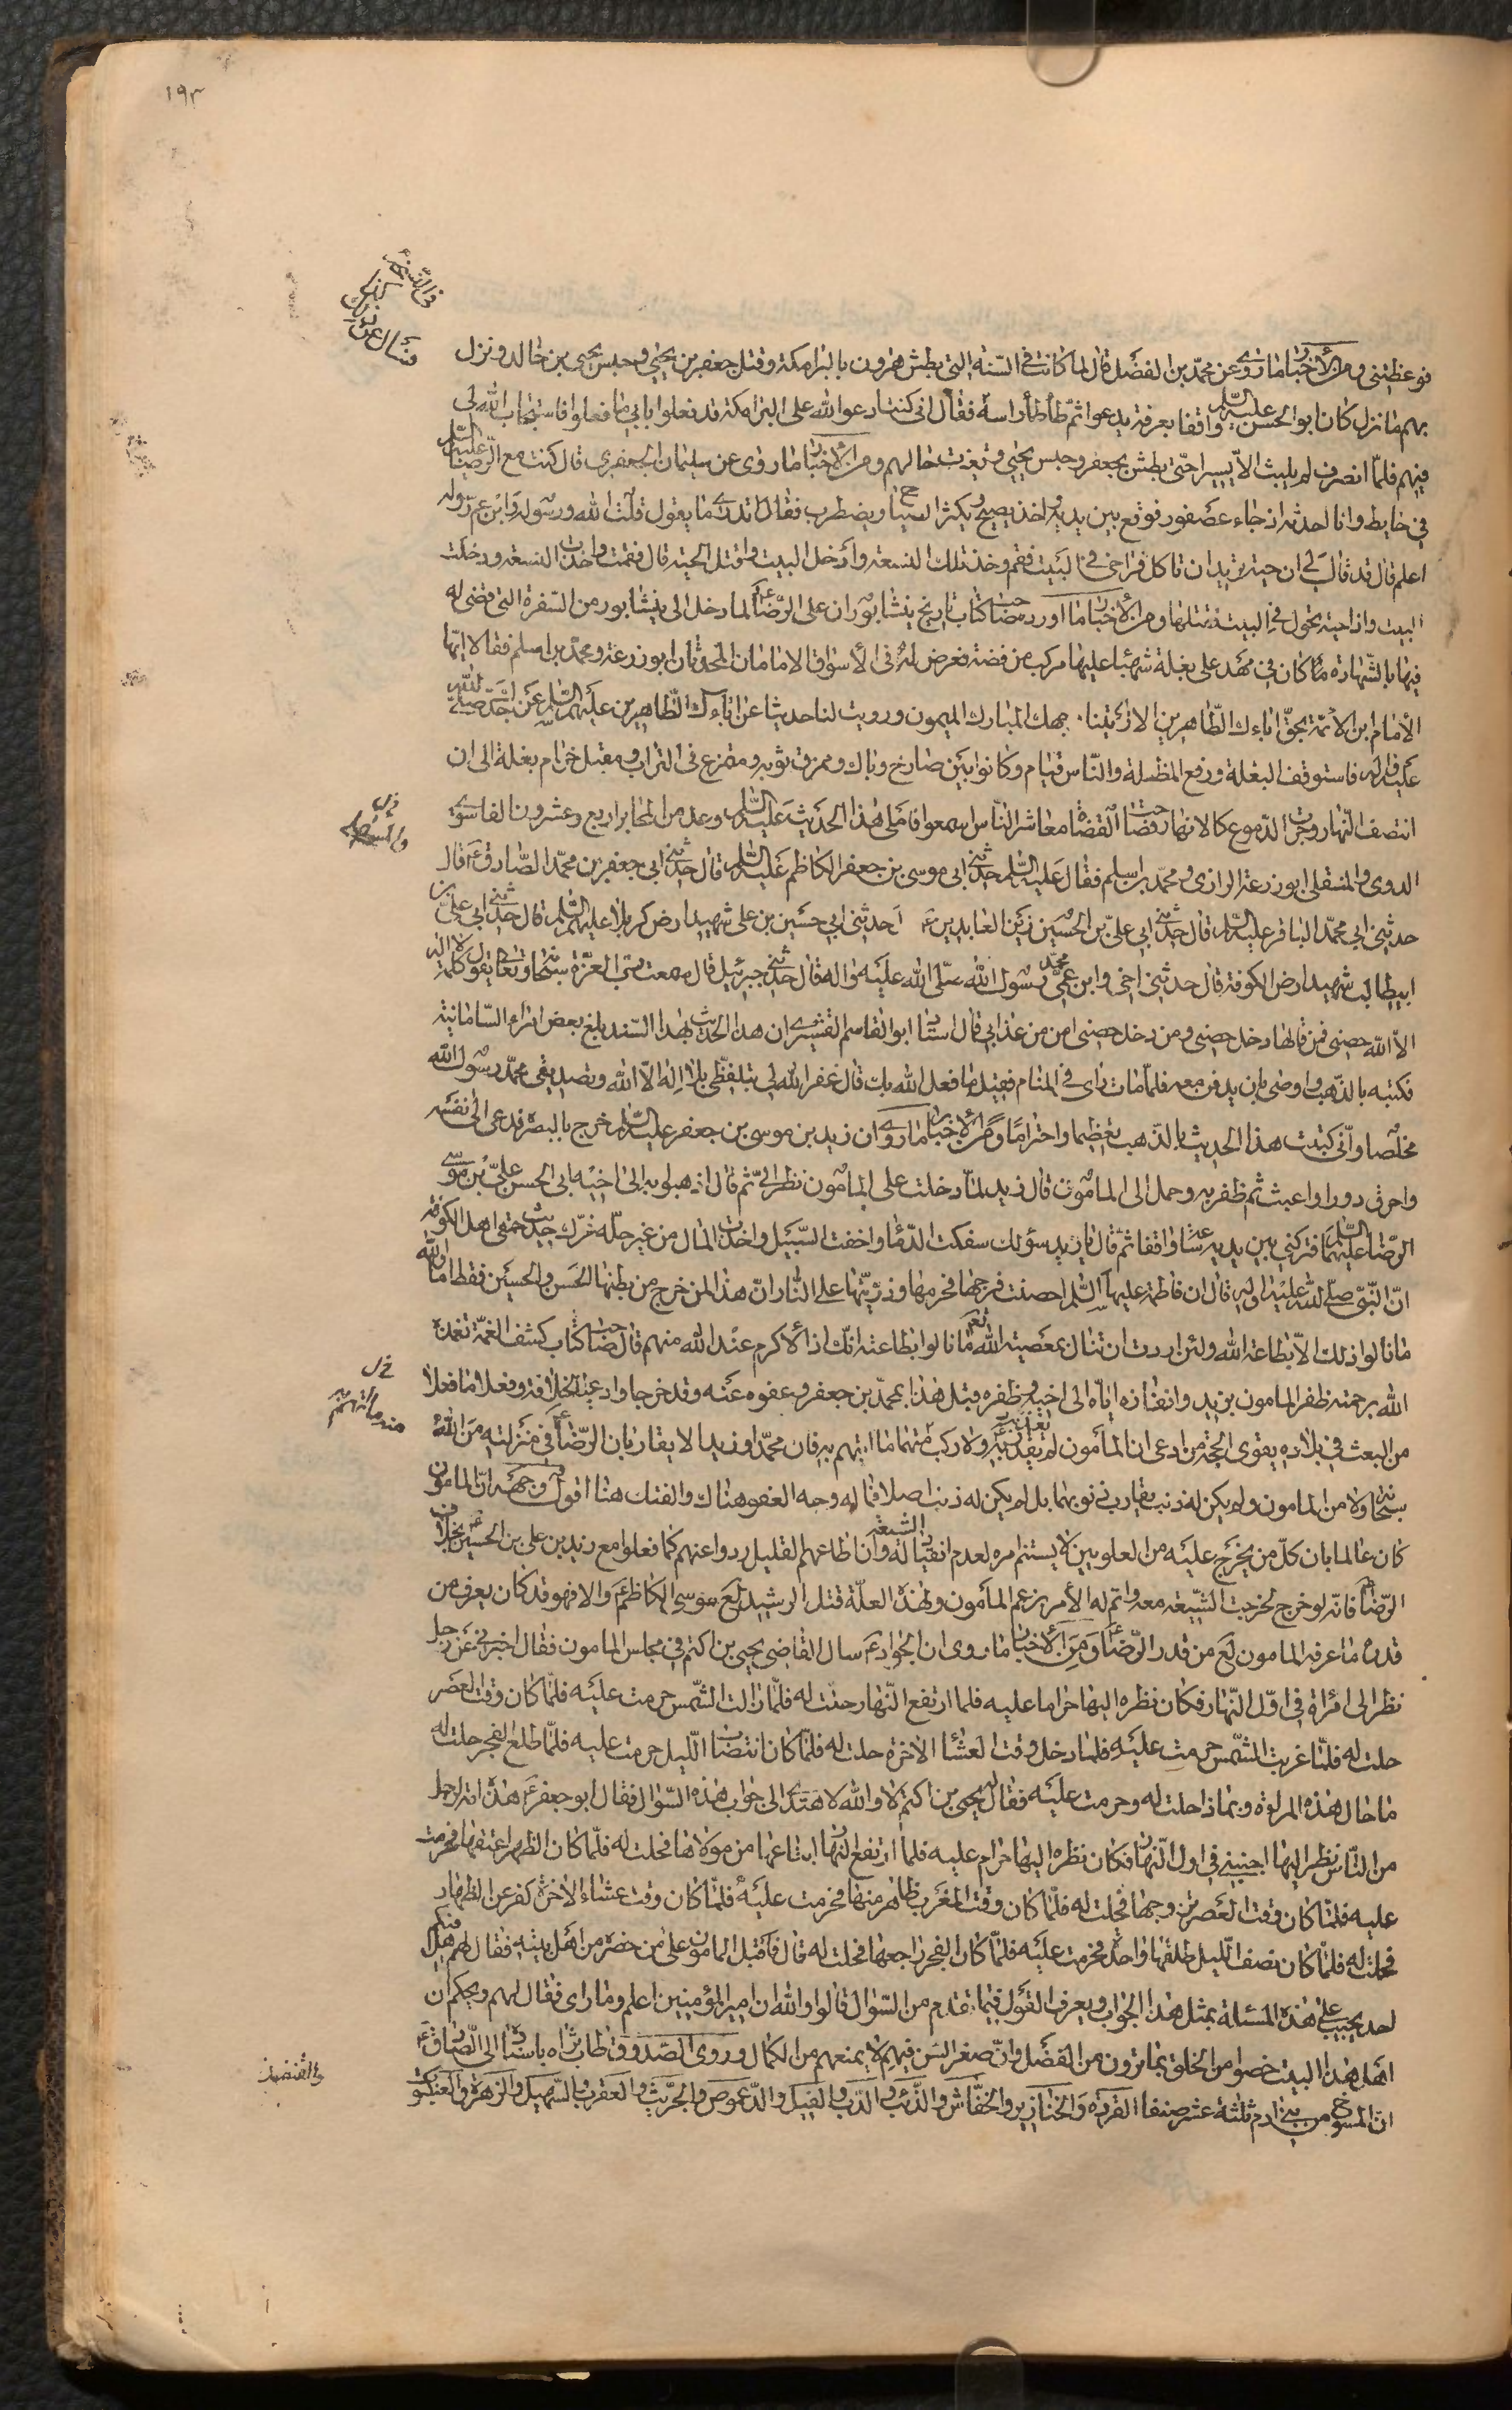 ١٩٣
في السنة
فسأل عن ذلك
فوعظتني ومن الأخبار ما روى عن محمد بن الفضل قال لما كانت في السنة التي بطش هرون بالبرامكة وقتل جعفر بن يحيى وحبس يحيى بن خالد ونزل
بهم ما نزل كان ابو الحسن عليه السلم واقفا بعرفة يدعو ثم طأطأ رأسه فقال اني كنت ادعو الله على البرامكة قد فعلوا بابي ما فعلوا فاستجاب الله لي
فيهم فلما انصرف لم يلبث الا يسيرا حتى بطش بجعفر وحبس يحيى وتغيرت حالهم ومن الأخبار ما روى عن سليمان الجعفري قال كنت مع الرضا عليه السلم
في حايط وانا احدثه اذ جاء عصفور فوقع بين يديه واخذ يصيح ويكثر الصياح ويضطرب فقال اتدرى ما يقول قلت الله ورسوله وابن رسوله
اعلم قال قد قال لي ان حية تريد ان تاكل فراخي في البيت فقم وخذ تلك النسعة وادخل البيت واقتل الحية قال فقمت واخذت النسعة ودخلت
البيت واذا حية تجول في البيت فقتلتها ومن الأخبار ما اورد صاحب كتاب تاريخ نيشابور ان علي الرضا ع لما دخل الى نيشابور من السفرة التي قضى له
فيها بالشهادة كان في مهد على بغلة شهباء عليها مركب من فضة فعرض له في الأسواق الامامان المحدثان ابو زرعة ومحمد بن اسلم فقالا ايها
الأمام ابن الأئمة بحق اباءك الطاهرين الا اريتنا وجهك المبارك الميمون ورويت لنا حديثا عن اباءك الطاهرين عليهم السلم عن جدك صلى الله
عليه واله فاستوقف البغلة ورفع المظلة والناس قيام وكانوا بين صارخ وباك وممزق ثوبه ومتمرغ في التراب ومقبل حزام بغلة الى ان
انتصف النهار وجرت الدموع كالانهار وصاحت القضاة معاشر الناس اسمعوا فاملى هذا الحديث عليه السلم وعد من المحابر اربع وعشرون الفا سوى
الدوى والمستملى ابو زرعة الرازي ومحمد بن اسلم فقال عليه السلم حدثني ابي موسى بن جعفر الكاظم عليه السلم قال حدثني ابي جعفر بن محمد الصادق ع قال
حدثني ابي محمد الباقر عليه السلم قال حدثني ابي علي بن الحسين زين العابدين ع حدثني ابي حسين بن علي شهيد ارض كربلا عليهم السلم قال حدثني ابي علي بن
ابيطالب شهيد ارض الكوفة قال حدثني اخي وابن عمي محمد رسول الله صلى الله عليه واله قال حدثني جبرئيل قال سمعت رب العزة سبحانه وتعالى يقول كلمة لا اله
الا الله حصني فمن قالها دخل حصني ومن دخل حصني امن من عذابي قال استاد ابو القاسم القشيرى ان هذا الحديث بهذا السند بلغ بعض امراء السامانية
فكتبه بالذهب واوصى بان يدفن معه فلما مات راى في المنام فقيل ما فعل الله بك قال غفر الله لي بتلفظي بلا اله الا الله وتصديقي محمد رسول الله
مخلصا واني كتبت هذا الحديث بالذهب تعظيما واحتراما ومن الأخبار ما روى ان زيد بن موسى بن جعفر عليه السلم خرج بالبصرة فدعى الى نفسه
واحرق دورا واعبث ثم ظفر به وحمل الى المأمون قال زيد لما دخلت على المأمون نظر الي ثم قال اذهبوا به الى اخيه ابي الحسن علي بن موسى
الرضا عليهما السلم فتركني بين يديه ساعة واقفا ثم قال يا زيد سؤلك سفكت الدماء واخفت السبيل واخذت المال من غير حله غرك حديث حمقى اهل الكوفة
ان النبي صلى الله عليه واله قال ان فاطمة عليها السلم احصنت فرجها فحرمها وذريتها على النار ان هذا لمن خرج من بطنها الحسن والحسين فقط اما والله
ما نالوا ذلك الا بطاعة الله ولئن اردت ان تنال بمعصية الله ما نالوا بطاعته انك اذا لاكرم عند الله منهم قال صاحب كتاب كشف الغمة تغمده
الله برحمته ظفر المامون بزيد وانفاذه اياه الى اخيه وظفره قبل هذا بمحمد بن جعفر وعفوه عنه وقد خرجا وادعيا الخلافة وفعلا ما فعلا
من البعث في بلاده يقوى الحجة من ادعى ان المأمون لم يغدر به ولا ركب منه ما اتهم به فان محمدا وزيدا لا يقاربان الرضا ع في منزلته من الله
سبحانه ولا من المامون ولم يكن له ذنب يقارب ذنوبهما بل لم يكن له ذنب اصلا فما له وجه العفو هناك والفتك هنا اقول وجهه ان المامون
كان عالما بان كل من يخرج عليه من العلويين لا يستتم امره لعدم انقياد الشيعة له وان اطاعهم القليل ردوا عنهم كما فعلوا مع زيد بن علي بن الحسين ع بخلاف
الرضا ع فانه لو خرج لخرجت الشيعة معه واتم له الأمر بزعم المأمون ولهذه العلة قتل الرشيد لع موسى الكاظم ع والا فهو قد كان يعرف من
قدره ما عرفه المامون لع من قدر الرضا ع ومن الأخبار ما روى ان الجواد ع سال القاضي يحيى بن اكثم في مجلس المامون فقال اخبرني عن رجل
نظر الى امرأة في اول النهار فكان نظره اليها حراما عليه فلما ارتفع النهار حلت له فلما زالت الشمس حرمت عليه فلما كان وقت العصر
حلت له فلما غربت الشمس حرمت عليه فلما دخل وقت العشاء الاخرة حلت له فلما كان انتصاف الليل حرمت عليه فلما طلع الفجر حلت له
ما حال هذه المراة وبماذا حلت له وحرمت عليه فقال له يحيى بن اكثم لا والله لا اهتدى الى جواب هذه السؤال فقال ابو جعفر ع هذه امة لرجل
من الناس نظر اليها اجنبي في اول النهار فكان نظره اليها حرام عليه فلما ارتفع النهار ابتاعها من مولاها فحلت له فلما كان الظهر اعتقها فحرمت
عليه فلما كان وقت العصر تزوجها فحلت له فلما كان وقت المغرب ظاهر منها فحرمت عليه فلما كان وقت عشاء الاخرة كفر عن الظهار
فحلت له فلما كان نصف الليل طلقها واحدة فحرمت عليه فلما كان الفجر راجعها فحلت له قال فاقبل المامون على من حضره من اهل بيته فقال لهم هل فيكم
احد يجيب عن هذه المسئلة بمثل هذا الجواب ويعرف القول فيما تقدم من السؤال قالوا والله ان امير المؤمنين اعلم وما راى فقال لهم ويحكم ان
اهل هذا البيت خصوا من الخلق بما ترون من الفضل وان صغر السن فيهم لا يمنعهم من الكمال وروى الصدوق طاب ثراه باسناده الى الصادق ع
ان المسوخ من بني ادم ثلثة عشر صنفا القردة والخنازير والخفاش والذئب والدب والفيل والدعموص والجريث والعقرب والسهيل والزهرة والعنكبوت
والقنفذ